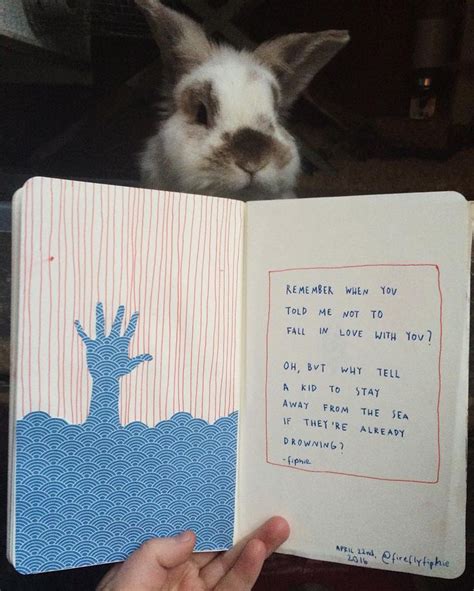 REMEMBER WHEN YOU
TOLD ME NOT TO
FALL IN LOVE WITH YOU?
OH, BUT WHY TELL
A KID TO STAY
AWAY FROM THE SEA
IF THEY'RE ALREADY
DROWNING?
-fiphie
APRIL 22nd,
2016 @fireflyfiphie